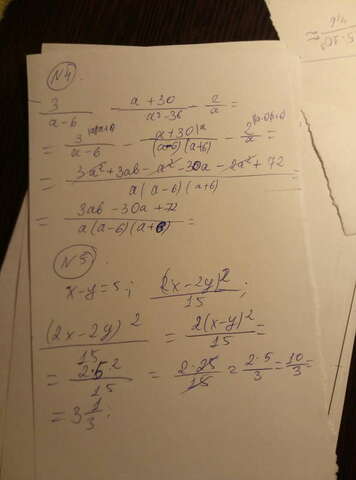 N4.
3/(a-6) - (a+30)/(a²-36) - 2/a =
= 3/(a-6) - (a+30)/((a-6)(a+6)) - 2/a =
= (3a²+3ab-a²-30a-2a²+72)/(a(a-6)(a+6)) =
= (3ab-30a+72)/(a(a-6)(a+6)) =
N5.
x-y=5; (2x-2y)²/15;
(2x-2y)²/15 = 2(x-y)²/15 =
= 2·5²/15 = 2·25/15 = 2·5/3 = 10/3 =
= 3 1/3;